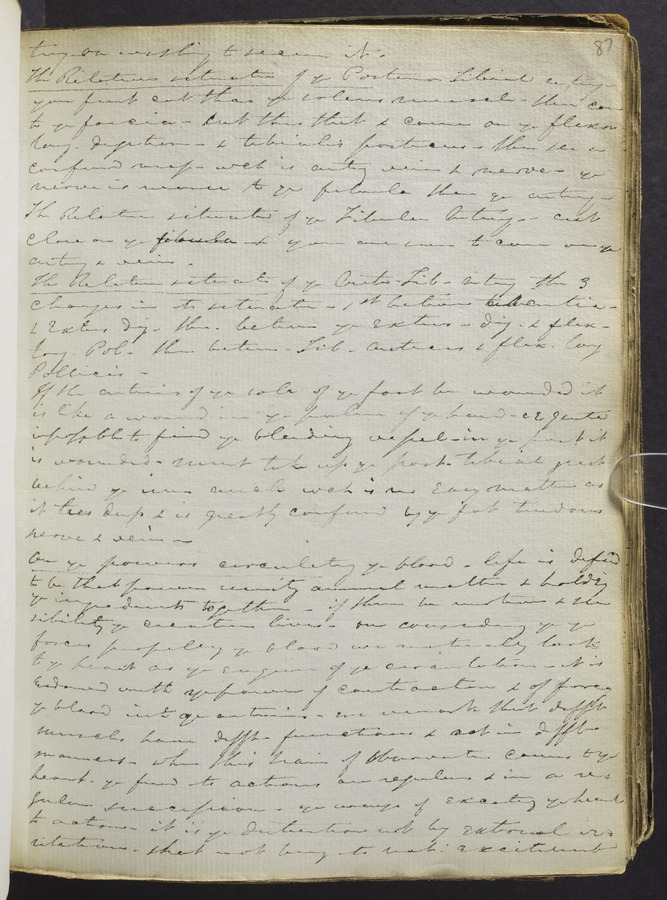 87
try on wishing to secure it.
The Relative situation of ye Posterior Tibial artery
you first cut thro ye soleus muscle - then come
to ye fascia - cut thro that & come on ye flexor
long. digitorum - & tibialis posticus - then see a
confused map - wch is artery vein & nerve - ye
nerve is nearer to ye fibula than ye artery -
The Relative situation of ye Fibular Artery - cut
close on ye fibula & you are sure to come on ye
artery & vein.
The Relative situate of ye Tib - artery the 3
changes in its situate - 1st between
& Extens Dig. then between ye Extens - Dig. & flex -
long Pol - then between Tib. anticus & flex. long
Pollicis -
If the arteries of ye sole of ye foot be wounded it
is like a wound in ye palm of ye hand - & quite
impossible to find ye bleeding vessel - in ye foot it
is wounded - must take up ye post. tibial just
behind ye inner ancle wch is no easy matter as
it lies deep & is greatly confused by ye fat tendons
nerve & vein -
On ye powers circulating ye blood - life is defind
to be that power uniting animal matter & holding
ye ingredients together - if there be motion & sen
sibility ye creature lives - on considering ye
forces propelling ye blood we naturally look
to ye heart as ye engine of ye circulation - it is
Endowed with ye powers of contraction & of forcing
ye blood into ye arteries - we remark that difft
muscles have difft functions & act in difft
manners - when this train of observate comes to ye
heart - ye find its actions are regular & in a re-
gular succession - ye ways of exciting ye heart
to action - it is ye distention not by external irr=
itation - that not being its nat: excitement